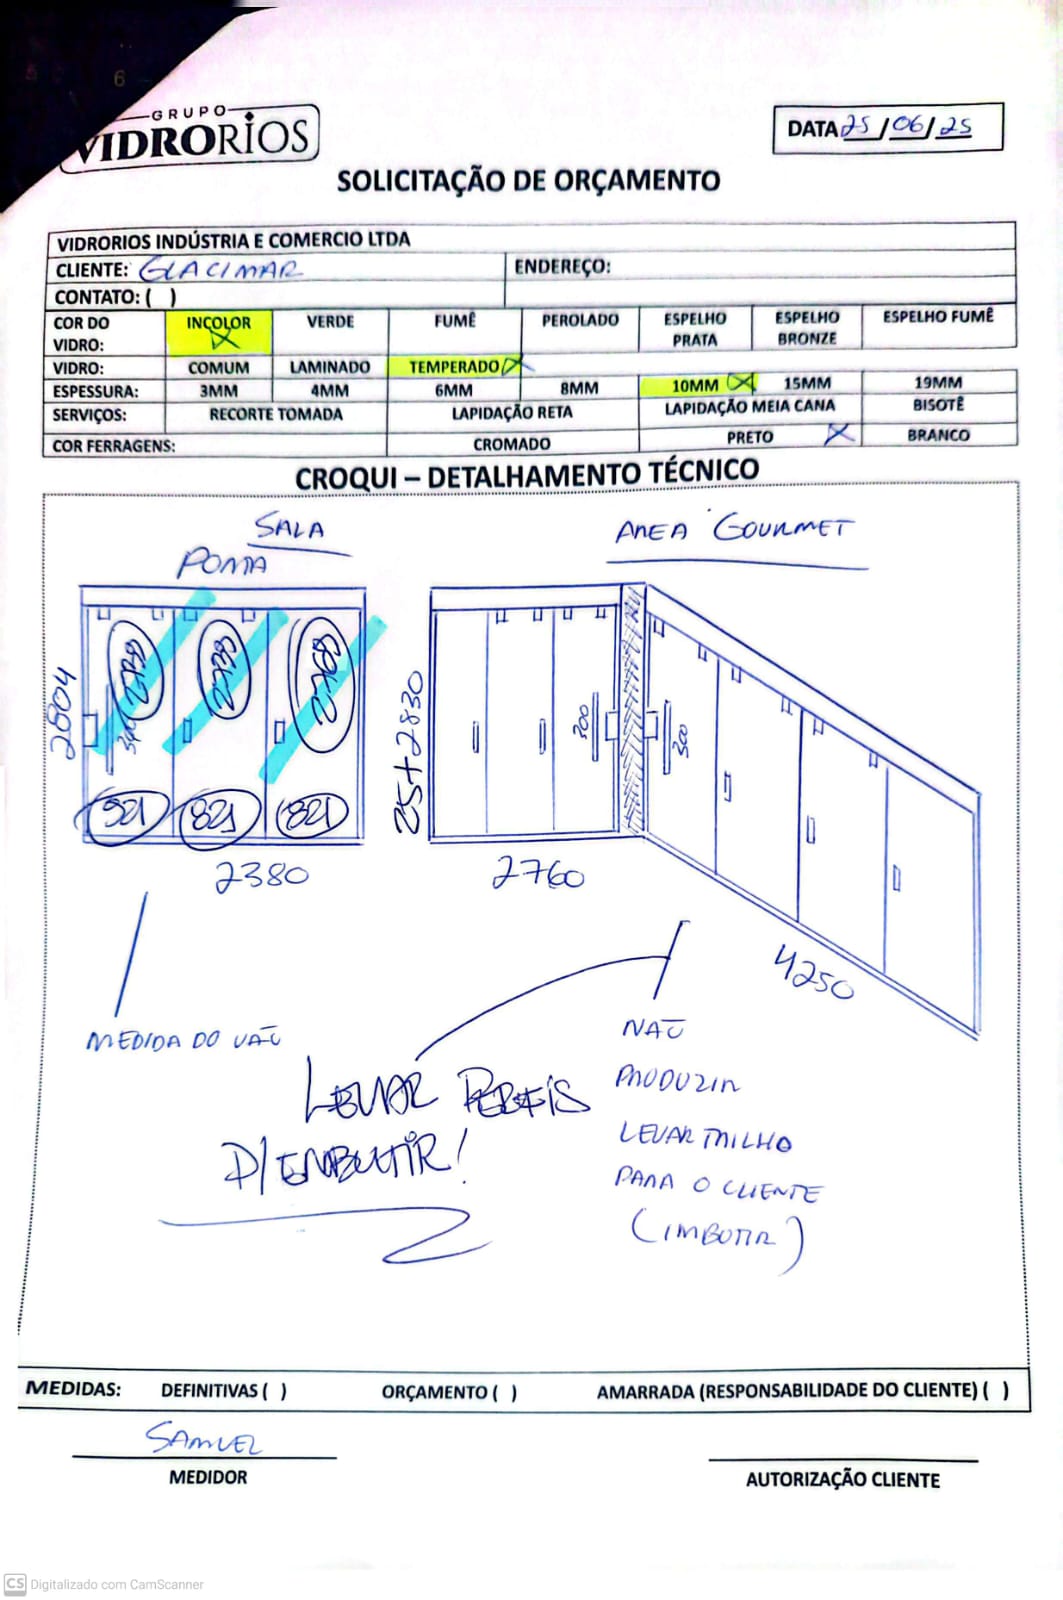 6
GRUPO
VIDRORIOS
DATA 25/06/25
SOLICITAÇÃO DE ORÇAMENTO
VIDRORIOS INDÚSTRIA E COMERCIO LTDA
CLIENTE: GLACIMAR ENDEREÇO:
CONTATO: ( )
COR DO VIDRO: INCOLOR X VERDE FUMÊ PEROLADO ESPELHO PRATA ESPELHO BRONZE ESPELHO FUMÊ
VIDRO: COMUM LAMINADO TEMPERADO X
ESPESSURA: 3MM 4MM 6MM 8MM 10MM X 15MM 19MM
SERVIÇOS: RECORTE TOMADA LAPIDAÇÃO RETA LAPIDAÇÃO MEIA CANA BISOTÊ
COR FERRAGENS: CROMADO PRETO X BRANCO
CROQUI – DETALHAMENTO TÉCNICO
SALA
PORTA
AREA GOURMET
2804
25+2830
300
300
821 821 821
2380
2760
4250
MEDIDA DO VÃO
LEVAR PERFIS
P/ EMBUTIR!
NÃO
PRODUZIR
LEVAR TRILHO
PARA O CLIENTE
(IMBUTIR)
MEDIDAS: DEFINITIVAS ( ) ORÇAMENTO ( ) AMARRADA (RESPONSABILIDADE DO CLIENTE) ( )
SAMUEL
MEDIDOR
AUTORIZAÇÃO CLIENTE
CS Digitalizado com CamScanner